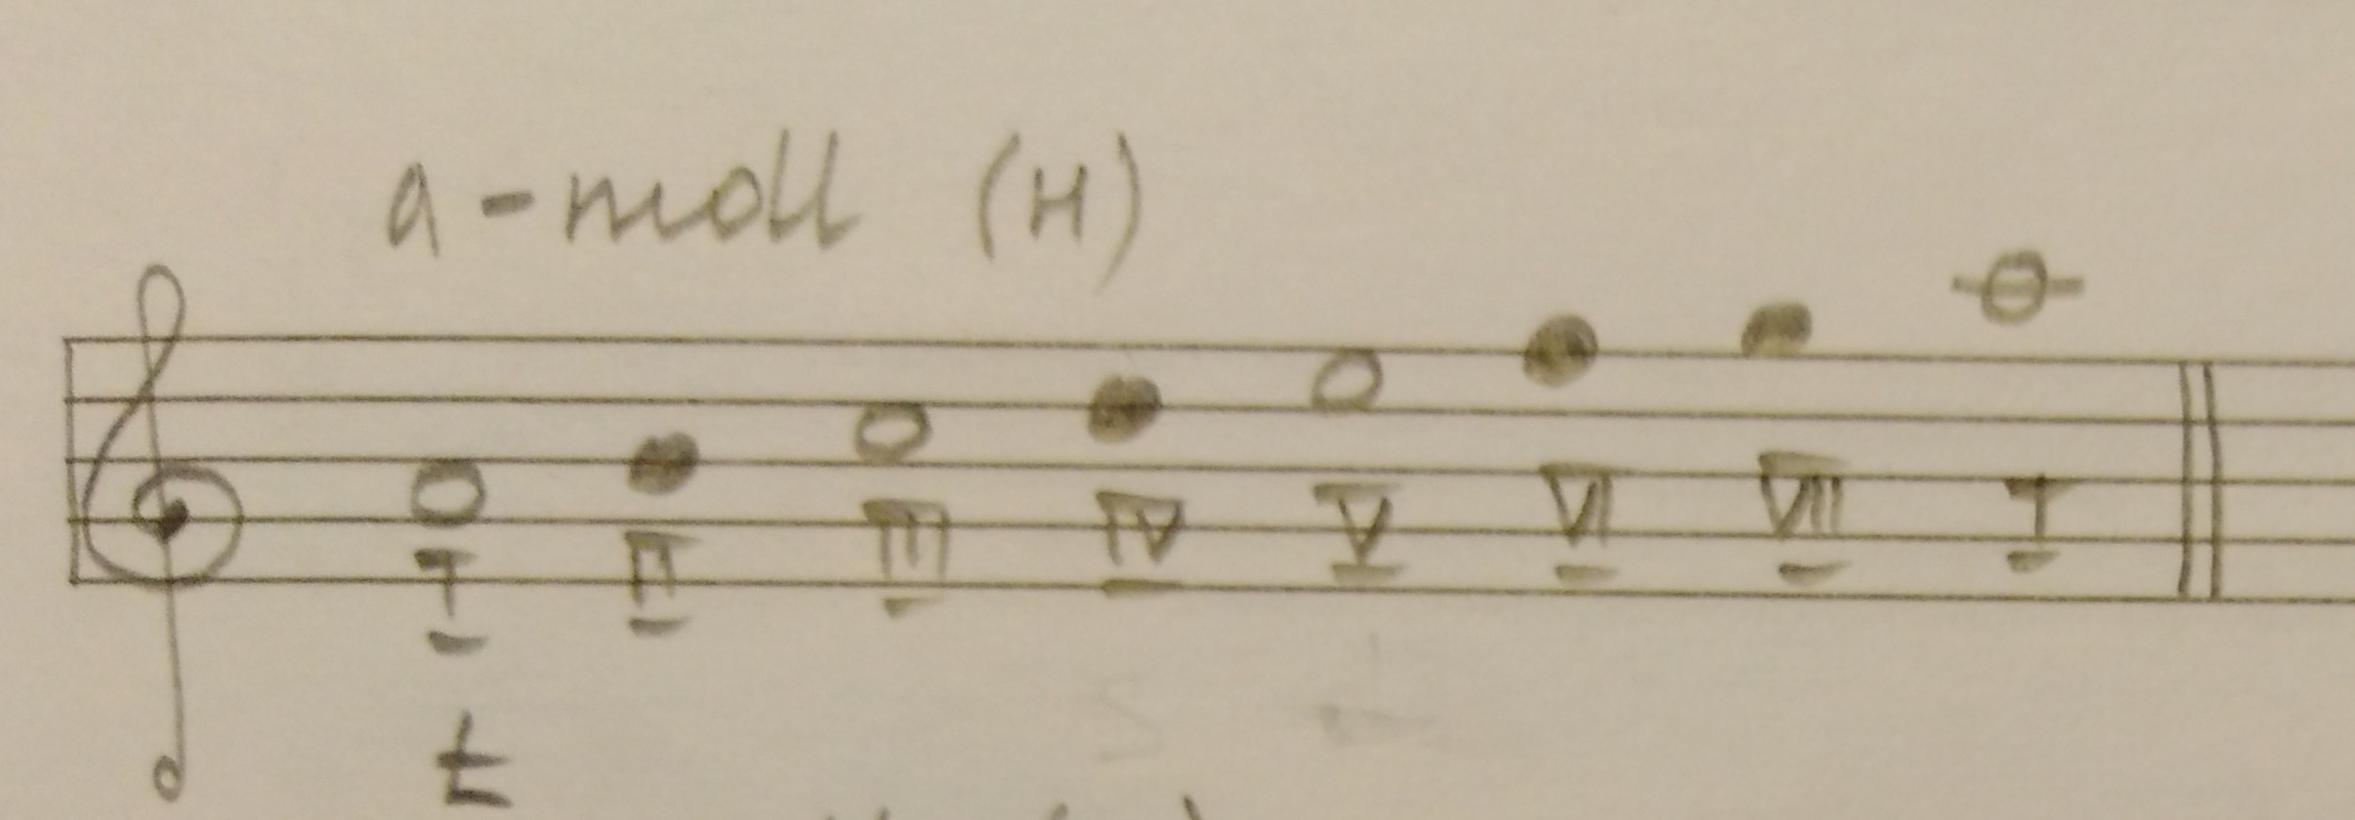 a-moll (н)
I II III IV V VI VII I
t s d